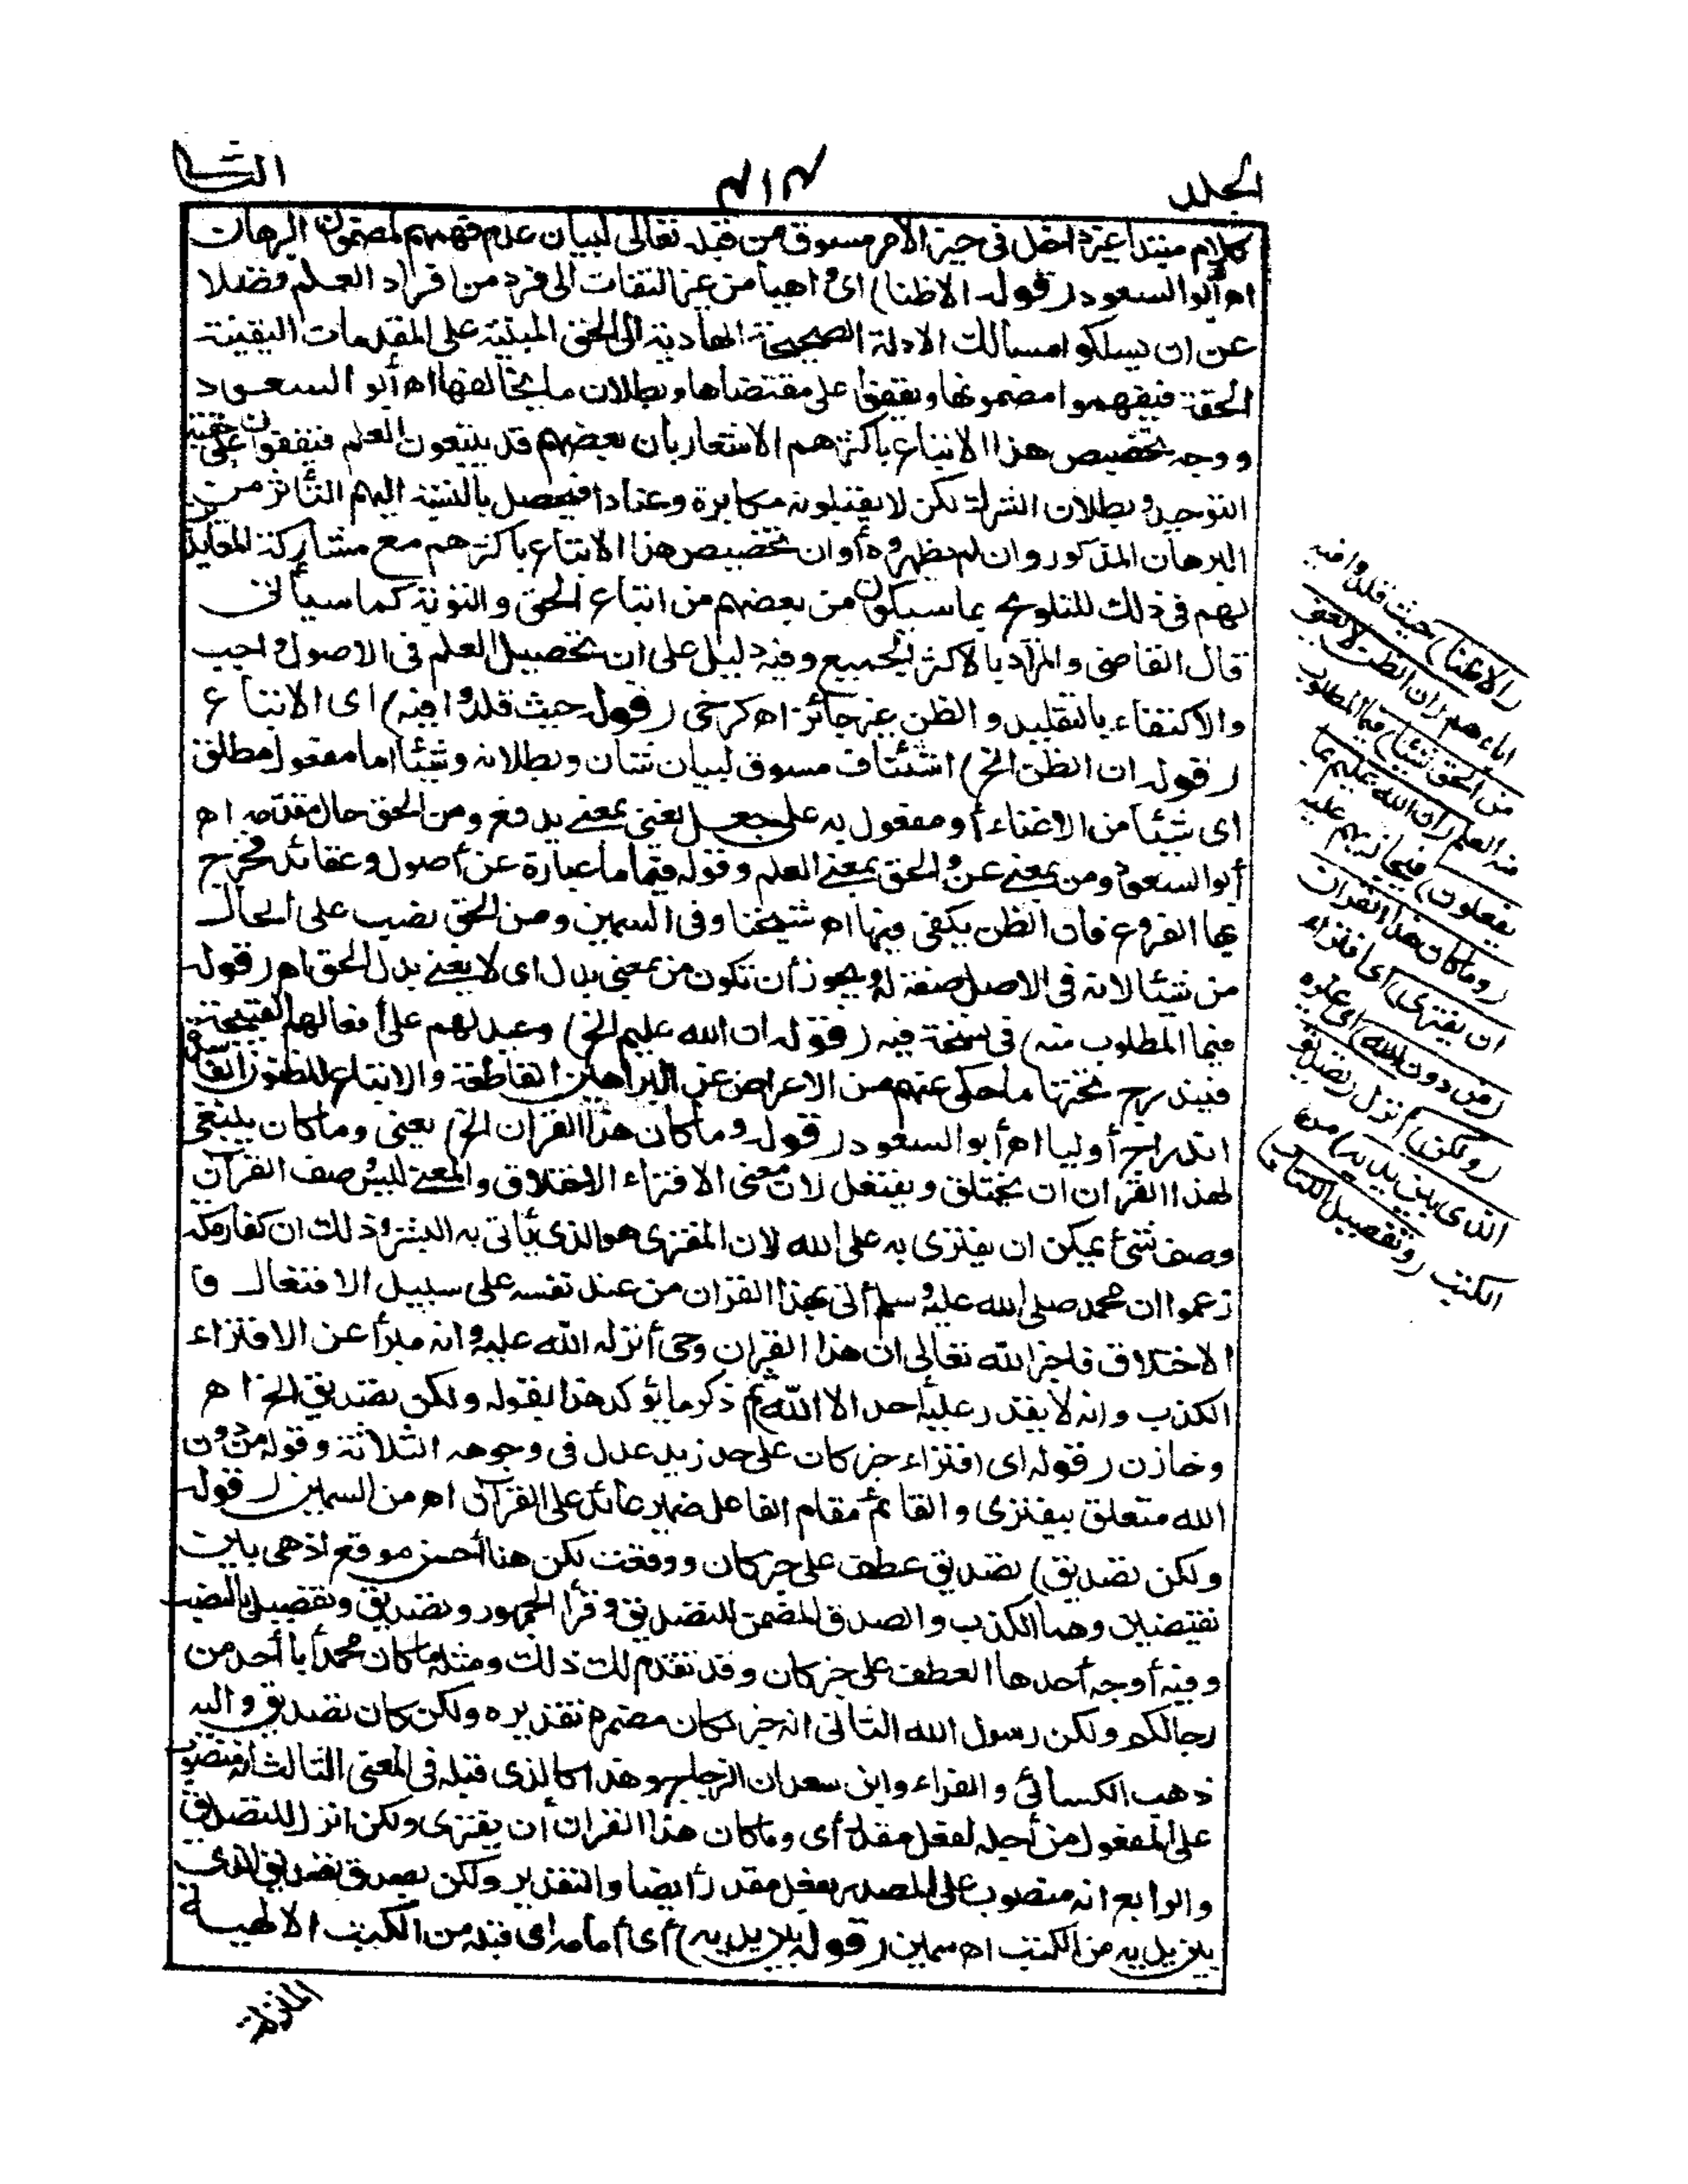 الجلد
٤١٤
الثانى
كلام مبتدأ غير داخل فى حيز الامر مسوق من قبله تعالى لبيان عدم فهمهم لمضمون البرهان
اه أبو السعود (قوله الا ظنا) اى واهيا من غير التفات الى فرد من افراد العلم فضلا
عن ان يسلكوا مسالك الادلة الصحيحة الهادية الى الحق المبنية على المقدمات اليقينية
الحقة فيفهموا مضمونها ويقفوا على مقتضاها وبطلان ما يخالفها اه أبو السعود
ووجه تخصيص هذا الاتباع باكثرهم الاشعار بان بعضهم قد يتبعون العلم فيقفون على حقيقة
التوحيد وبطلان الشرك لكن لا يقبلونه مكابرة وعنادا فيحصل بالنسبة اليهم التأثر من
البرهان المذكور وان لم يظهروه أو ان تخصيص هذا الاتباع باكثرهم مع مشاركة المعاندين
لهم فى ذلك للتلويح بما سيكون من بعضهم من اتباع الحق والتوبة كما سيأتى
قال القاضى والمراد بالاكثر الجميع وفيه دليل على ان تحصيل العلم فى الاصول واجب
والاكتفاء بالتقليد والظن غير جائز اه كرخى (قوله حيث قلدوا فيه) اى الاتباع
(قوله ان الظن الخ) استئناف مسوق لبيان شان وبطلانه وشيئا اما مفعول مطلق
اى شيئا من الاغناء أو مفعول به على جعل يغنى بمعنى يدفع ومن الحق حال مقدمه اه
أبو السعود ومن بمعنى عن والحق بمعنى العلم وقوله فيما ما عبارة عن أصول وعقائد فخرج
بها الفروع فان الظن يكفى فيها اه شيخنا وفى السمين ومن الحق نصب على الحال
من شيئا لانه فى الاصل صفة له ويجوز أن تكون من بمعنى بدل اى لا يغنى بدل الحق اه (قوله
فيما المطلوب منه) فى نسخة فيه (قوله ان الله عليم الخ) وعيد لهم على أفعالهم القبيحة
فيندرج تحتها ما حكى عنهم من الاعراض عن البراهين القاطعة والاتباع للظنون الفاسدة
اندراجا أوليا اه أبو السعود (قوله وما كان هذا القران الخ) يعنى وما كان ينبغى
لهذا القران ان يختلق ويفتعل لان معنى الافتراء الاختلاق والمعنى ليس وصف القرآن
وصف شئ يمكن ان يفترى به على الله لان المفترى هو الذى يأتى به البشر وذلك ان كفار مكة
زعموا ان محمد صلى الله عليه وسلم أتى بهذا القران من عند نفسه على سبيل الافتعال و
الاختلاق فاخبر الله تعالى ان هذا القران وحى أنزله الله عليه وانه مبرأ عن الافتراء
الكذب وانه لا يقدر عليه أحد الا الله ثم ذكر ما يؤكد هذا بقوله ولكن تصديق الخ اه
وخازن (قوله اى افتراء) خبر كان على حد زيد عدل فى وجوهه الثلاثة وقوله من دون
الله متعلق بيفترى والقائم مقام الفاعل ضمير عائد على القرآن اه من السمين (قوله
ولكن تصديق) تصديق عطف على خبر كان ووقعت لكن هنا أحسن موقع اذ هى بين
نقيضين وهما الكذب والصدق المضمن للتصديق وقرأ الجمهور وتصديق وتفصيل بالنصب
وفيه أوجه أحدها العطف على خبر كان وقد تقدم لك ذلك ومثله ما كان محمد أبا أحد من
رجالكم ولكن رسول الله الثانى انه خبر لكان مضمرة تقديره ولكن كان تصديق واليه
ذهب الكسائى والفراء وابن سعدان والزجاج وهذا كالذى قبله فى المعنى الثالث انه منصوب
على المفعول من أجله لفعل مقدر أى وما كان هذا القران أن يفترى ولكن انزل للتصديق
والرابع انه منصوب على المصدر بفعل مقدر أيضا والتقدير ولكن يصدق تصديق الذى
بين يديه من الكتب اه سمين (قوله بين يديه) أى أمامه اى قبله من الكتب الالهية
المنزلة
(الا ظنا) حيث قلدوا فيه
اباءهم (ان الظن لا يغنى
من الحق شيئا) فيما المطلوب
منه العلم (ان الله عليم بما
يفعلون) فيجازيهم عليه
(وما كان هذا القران
ان يفترى) اى افتراء
(من دون الله) اى غيره
(ولكن) انزل (تصديق
الذى بين يديه) من
الكتب (وتفصيل الكتاب)